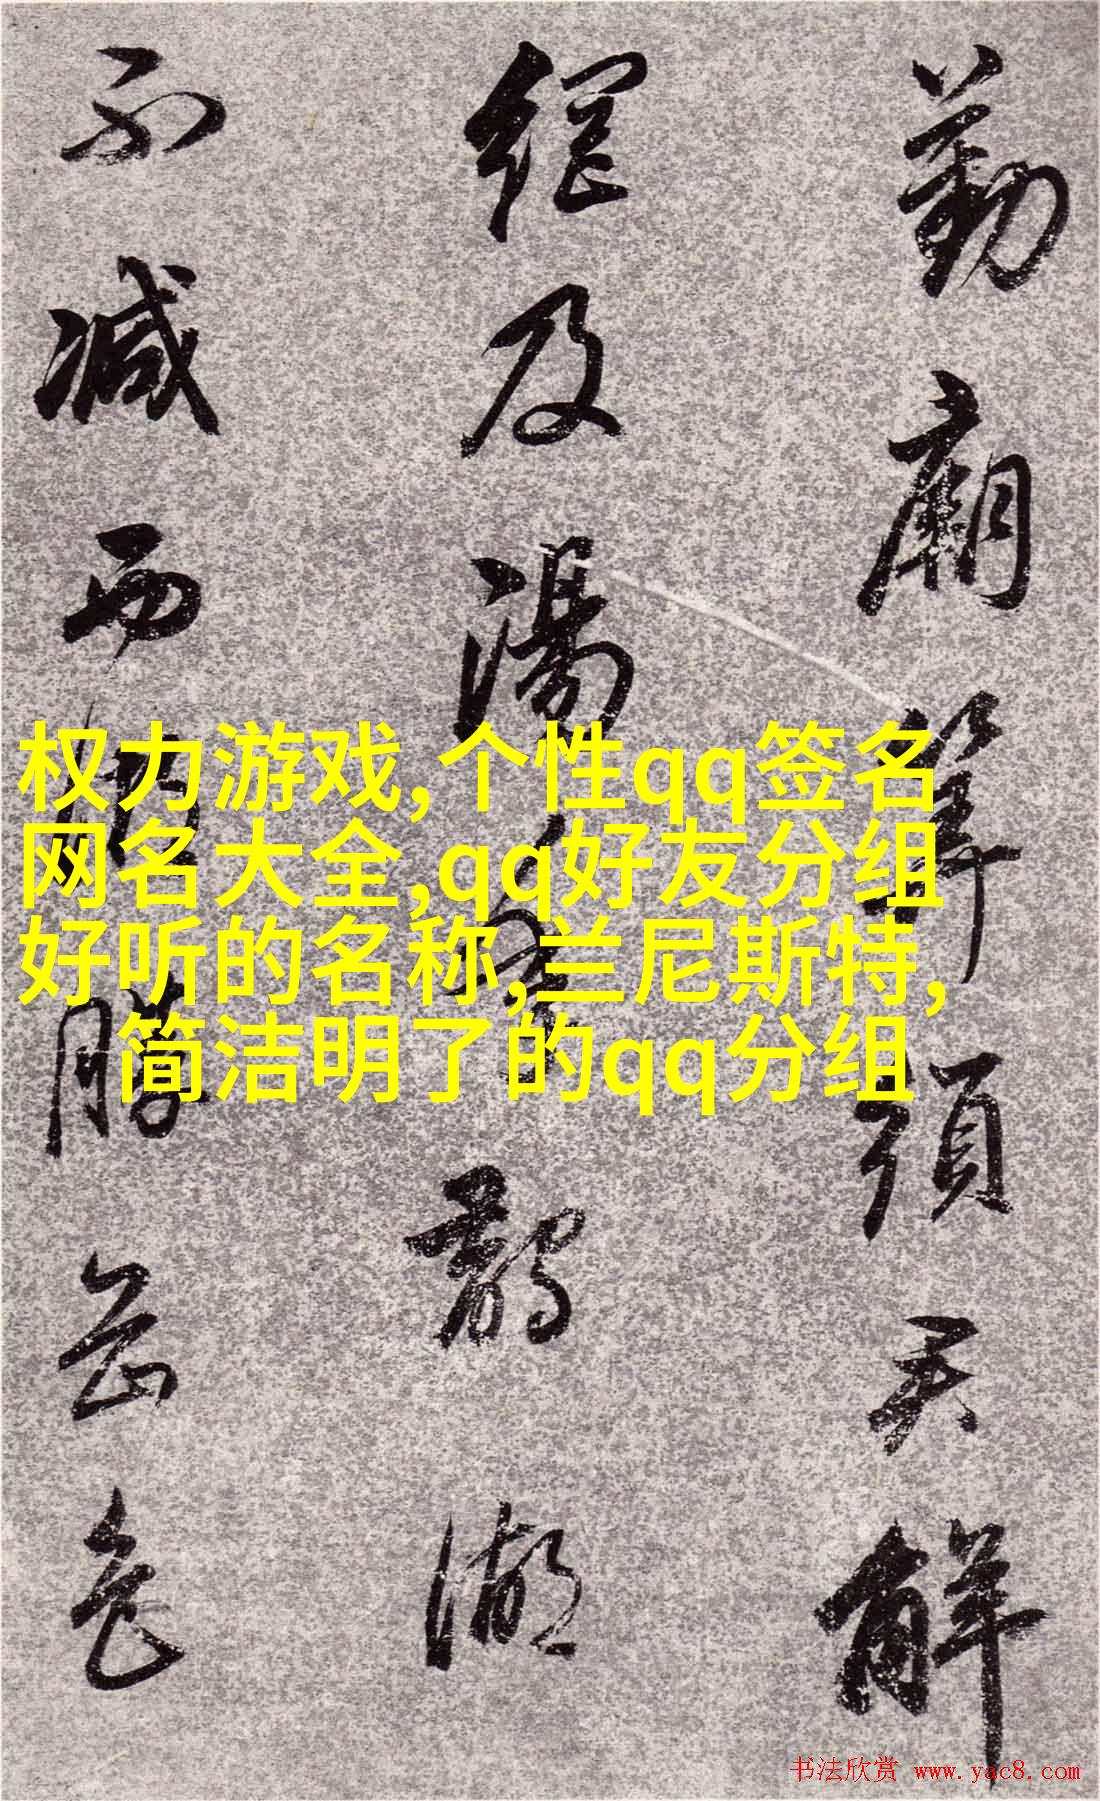 勤廟頭解
及湯鵲湖
不減西湖勝色
权力游戏,个性qq签名
网名大全,qq好友分组
好听的名称,兰尼斯特,
简洁明了的qq分组
书法欣赏 www.yac8.com